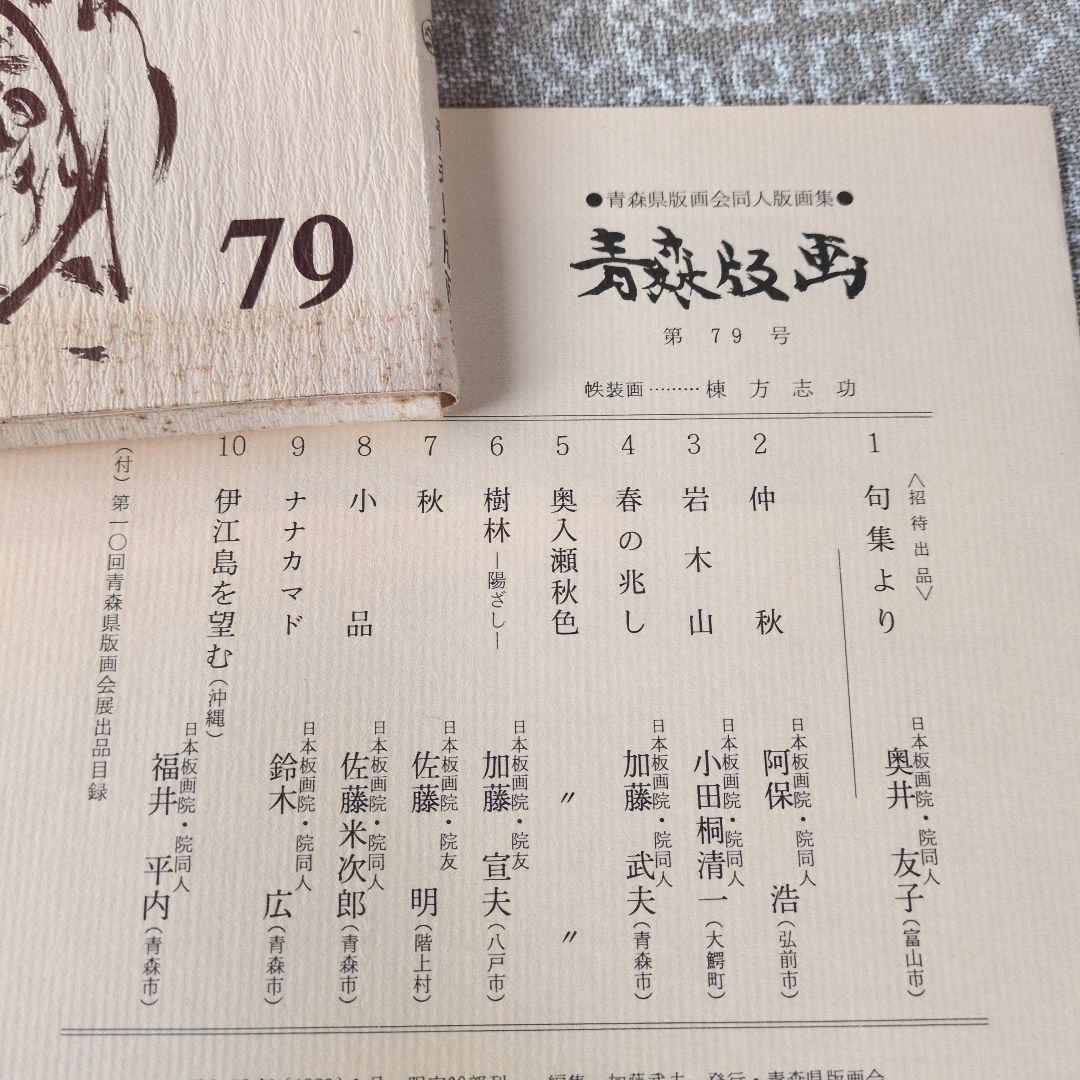 79
●青森県版画会同人版画集●
青森版画
第79号
帙装画………棟方志功
〈招待出品〉
1 句集より 日本板画院・院同人 奥井友子(富山市)
2 仲秋 日本板画院・院同人 阿保浩(弘前市)
3 岩木山 日本板画院・院同人 小田桐清一(大鰐町)
4 春の兆し 日本板画院・院同人 加藤武夫(青森市)
5 奥入瀬秋色 〃 〃
6 樹林―陽ざし― 日本板画院・院友 加藤宣夫(八戸市)
7 秋 日本板画院・院友 佐藤明(階上村)
8 小品 日本板画院・院同人 佐藤米次郎(青森市)
9 ナナカマド 日本板画院・院同人 鈴木広(青森市)
10 伊江島を望む(沖縄) 日本板画院・院同人 福井平内(青森市)
(付)第一〇回青森県版画会展出品目録
編集 加藤武夫 発行・青森県版画会